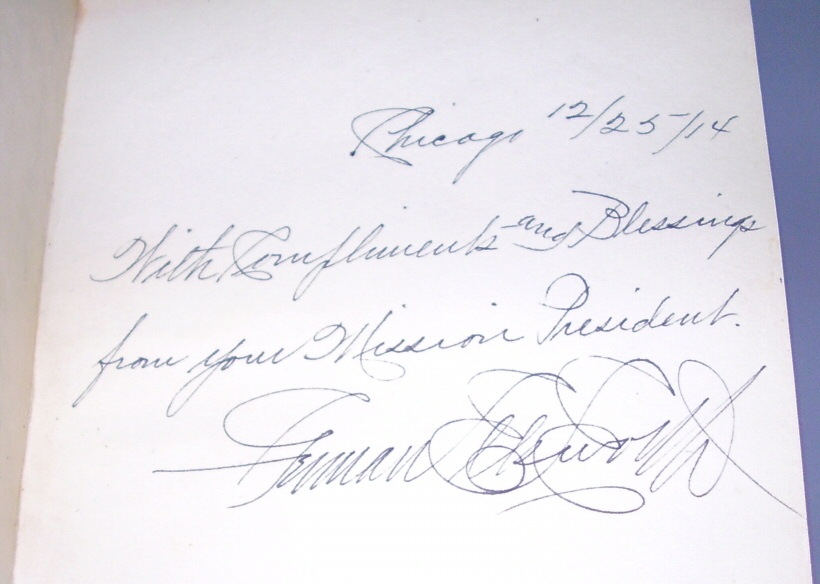 Chicago 12/25/14
With Compliments and Blessings
from your Mission President.
German Ellsworth